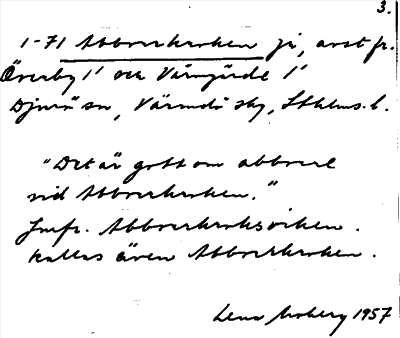 3.
1-71 Abborrkroken på, avst fr.
Överby 1¹ och Värmgärde 1¹
Djurö sn, Värmdö skg, Sthlms l.
"Det är gott om abborre
vid Abborrkroken."
Jmfr. Abborrkroksviken.
Kallas även Abborrkroken.
Lena Moberg 1957